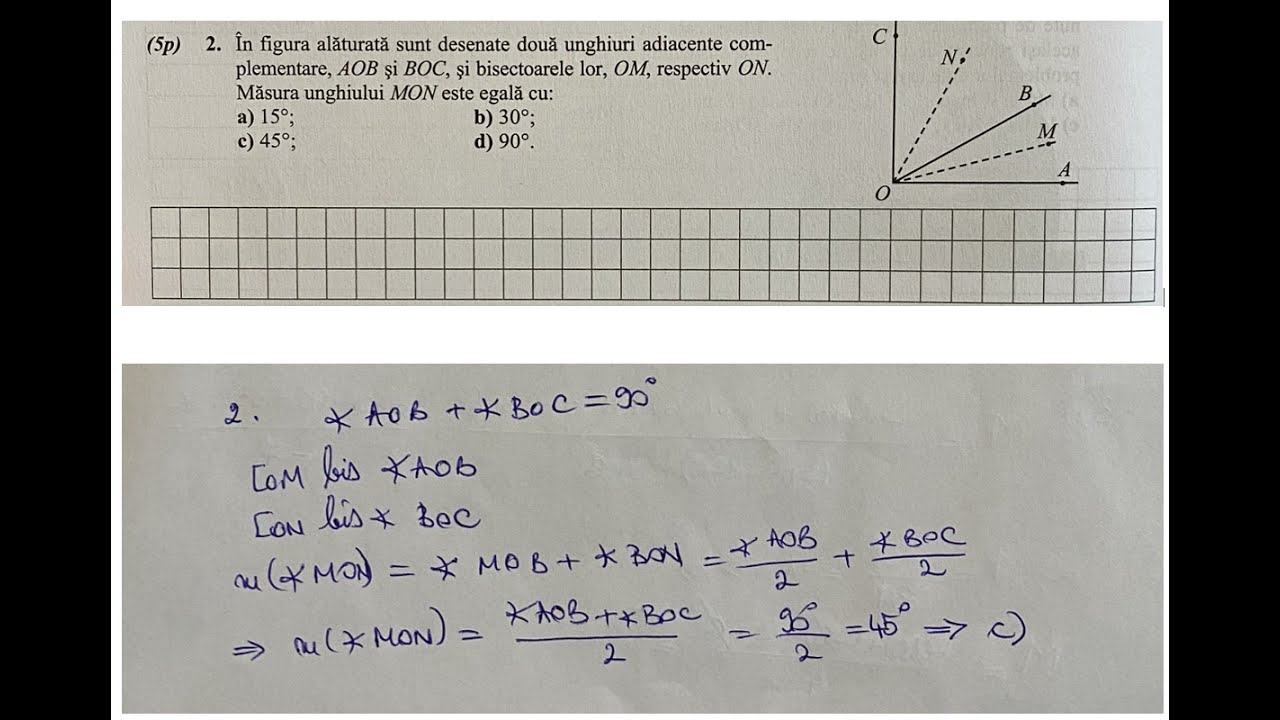 (5p) 2. În figura alăturată sunt desenate două unghiuri adiacente com-
plementare, AOB și BOC, și bisectoarele lor, OM, respectiv ON.
Măsura unghiului MON este egală cu:
a) 15°; b) 30°;
c) 45°; d) 90°.
C
N
B
M
A
O
2. ∢AOB + ∢BOC = 90°
[OM bis ∢AOB
[ON bis ∢ BOC
m(∢MON) = ∢ MOB + ∢ BON = ∢AOB/2 + ∢BOC/2
⇒ m(∢MON) = (∢AOB + ∢BOC)/2 = 90°/2 = 45° ⇒ c)